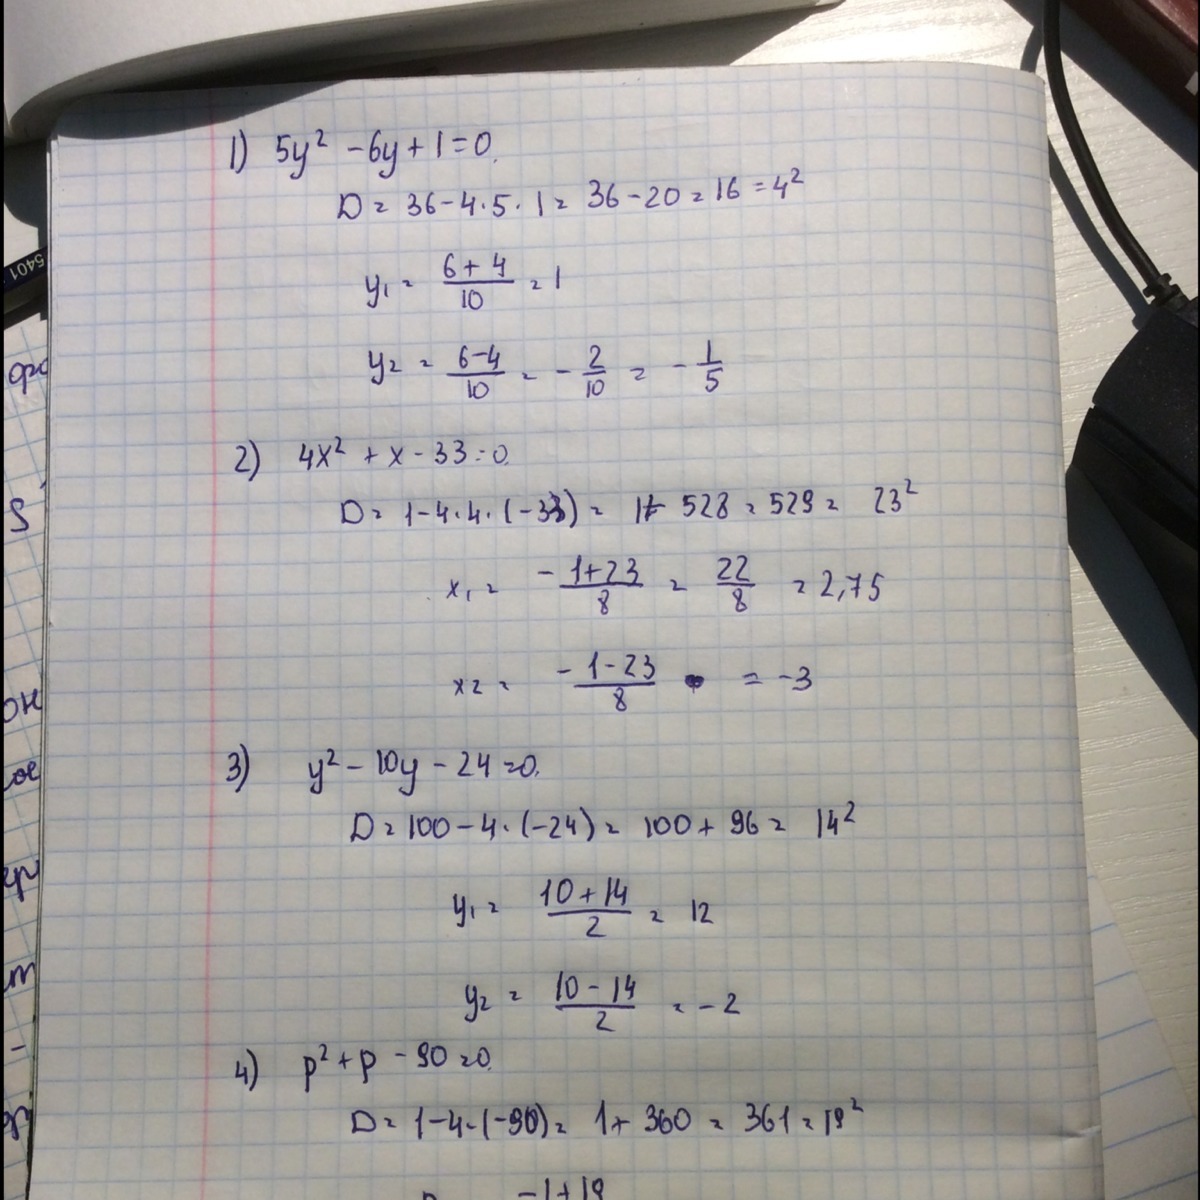 1) 5y² - 6y + 1 = 0.
D = 36 - 4 · 5 · 1 = 36 - 20 = 16 = 4²
y₁ = (6 + 4)/10 = 1
y₂ = (6 - 4)/10 = - 2/10 = - 1/5
2) 4x² + x - 33 = 0.
D = 1 - 4 · 4 · (-33) = 1 + 528 = 529 = 23²
x₁ = (-1 + 23)/8 = 22/8 = 2,75
x₂ = (-1 - 23)/8 = -3
3) y² - 10y - 24 = 0.
D = 100 - 4 · (-24) = 100 + 96 = 14²
y₁ = (10 + 14)/2 = 12
y₂ = (10 - 14)/2 = -2
4) p² + p - 90 = 0.
D = 1 - 4 · (-90) = 1 + 360 = 361 = 19²
-1 + 19
5401